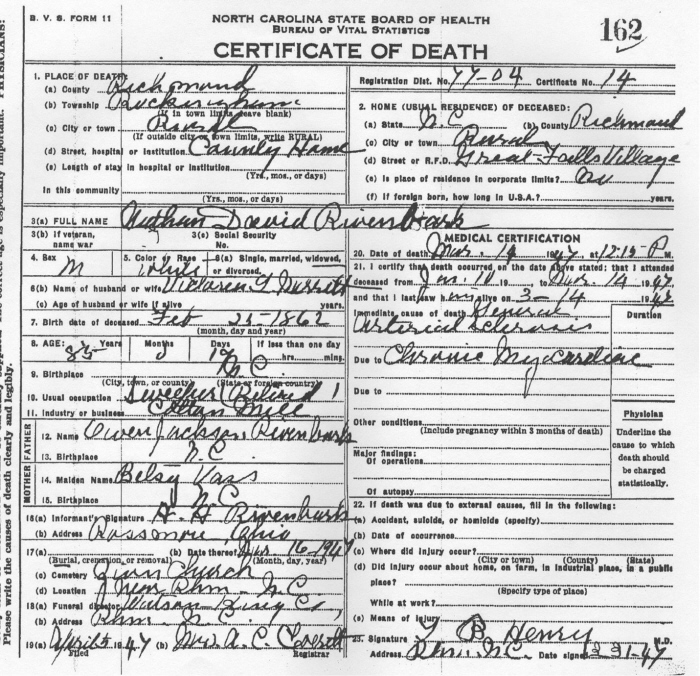 B. V. S. FORM 11
NORTH CAROLINA STATE BOARD OF HEALTH
BUREAU OF VITAL STATISTICS
CERTIFICATE OF DEATH
162
1. PLACE OF DEATH:
(a) County Richmond
(b) Township Rockingham
(If in town limits leave blank)
(c) City or town Rural
(If outside city or town limits, write RURAL)
(d) Street, hospital or institution County Home
(e) Length of stay in hospital or institution
(Yrs., mos., or days)
In this community
(Yrs., mos., or days)
Registration Dist. No. 77-04 Certificate No. 14
2. HOME (USUAL RESIDENCE) OF DECEASED:
(a) State N.C. (b) County Richmond
(c) City or town Rural
(d) Street or R.F.D. Great Falls Village
(e) Is place of residence in corporate limits? no
(f) If foreign born, how long in U.S.A.? years.
3(a) FULL NAME David Rivenbark
3(b) If veteran, name war
3(c) Social Security No.
4. Sex M
5. Color or Race White
6(a) Single, married, widowed, or divorced.
6(b) Name of husband or wife
(c) Age of husband or wife if alive years.
7. Birth date of deceased Feb 25-1862
(month, day and year)
8. AGE: 85 Years Months Days 19 If less than one day
hrs. min.
9. Birthplace N.C.
(City, town, or county) (State or foreign country)
10. Usual occupation Sweeper Retired
11. Industry or business Cotton Mill
FATHER
12. Name Owen Jackson Rivenbark
13. Birthplace N.C.
MOTHER
14. Maiden Name Betsy Vass
15. Birthplace N.C.
16(a) Informant's Signature H. H. Rivenbark
(b) Address Rossmore, Ohio
17(a) (b) Date thereof Mar 16-1947
(Burial, cremation, or removal) (Month, day, year)
(c) Cemetery Church
(d) Location Near Rhm. N.C.
18(a) Funeral director Watson King Co
(b) Address Rhm. N.C.
19(a) April 5 1947 (b) Mrs. A. C. Everett
Filed Registrar
MEDICAL CERTIFICATION
20. Date of death Mar. 14 1947 at 12:15 P.M.
21. I certify that death occurred on the date above stated; that I attended
deceased from Jan. 11 19 to Mar. 14 1947
and that I last saw him alive on 3-14 1947
Immediate cause of death General
Arterial Sclerosis
Duration
Due to Chronic Myocardiac
Due to
Other conditions
(Include pregnancy within 3 months of death)
Major findings:
Of operations
Of autopsy
Physician
Underline the cause to which death should be charged statistically.
22. If death was due to external causes, fill in the following:
(a) Accident, suicide, or homicide (specify)
(b) Date of occurrence
(c) Where did injury occur?
(City or town) (County) (State)
(d) Did injury occur about home, on farm, in industrial place, in a public
place?
(Specify type of place)
While at work?
(e) Means of injury
23. Signature B. Henry M.D.
Address Rhm. N.C. Date signed
Please write the causes of death clearly and legibly.